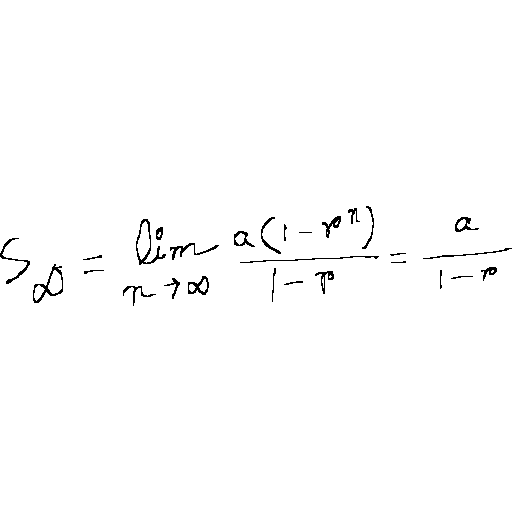 S_∞ = lim_{n→∞} a(1-r^n)/(1-r) = a/(1-r)